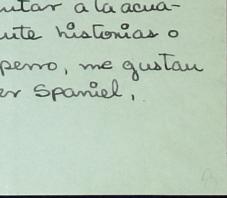 utar a la acua-
ute historias o
perro, me gustan
er Spaniel.